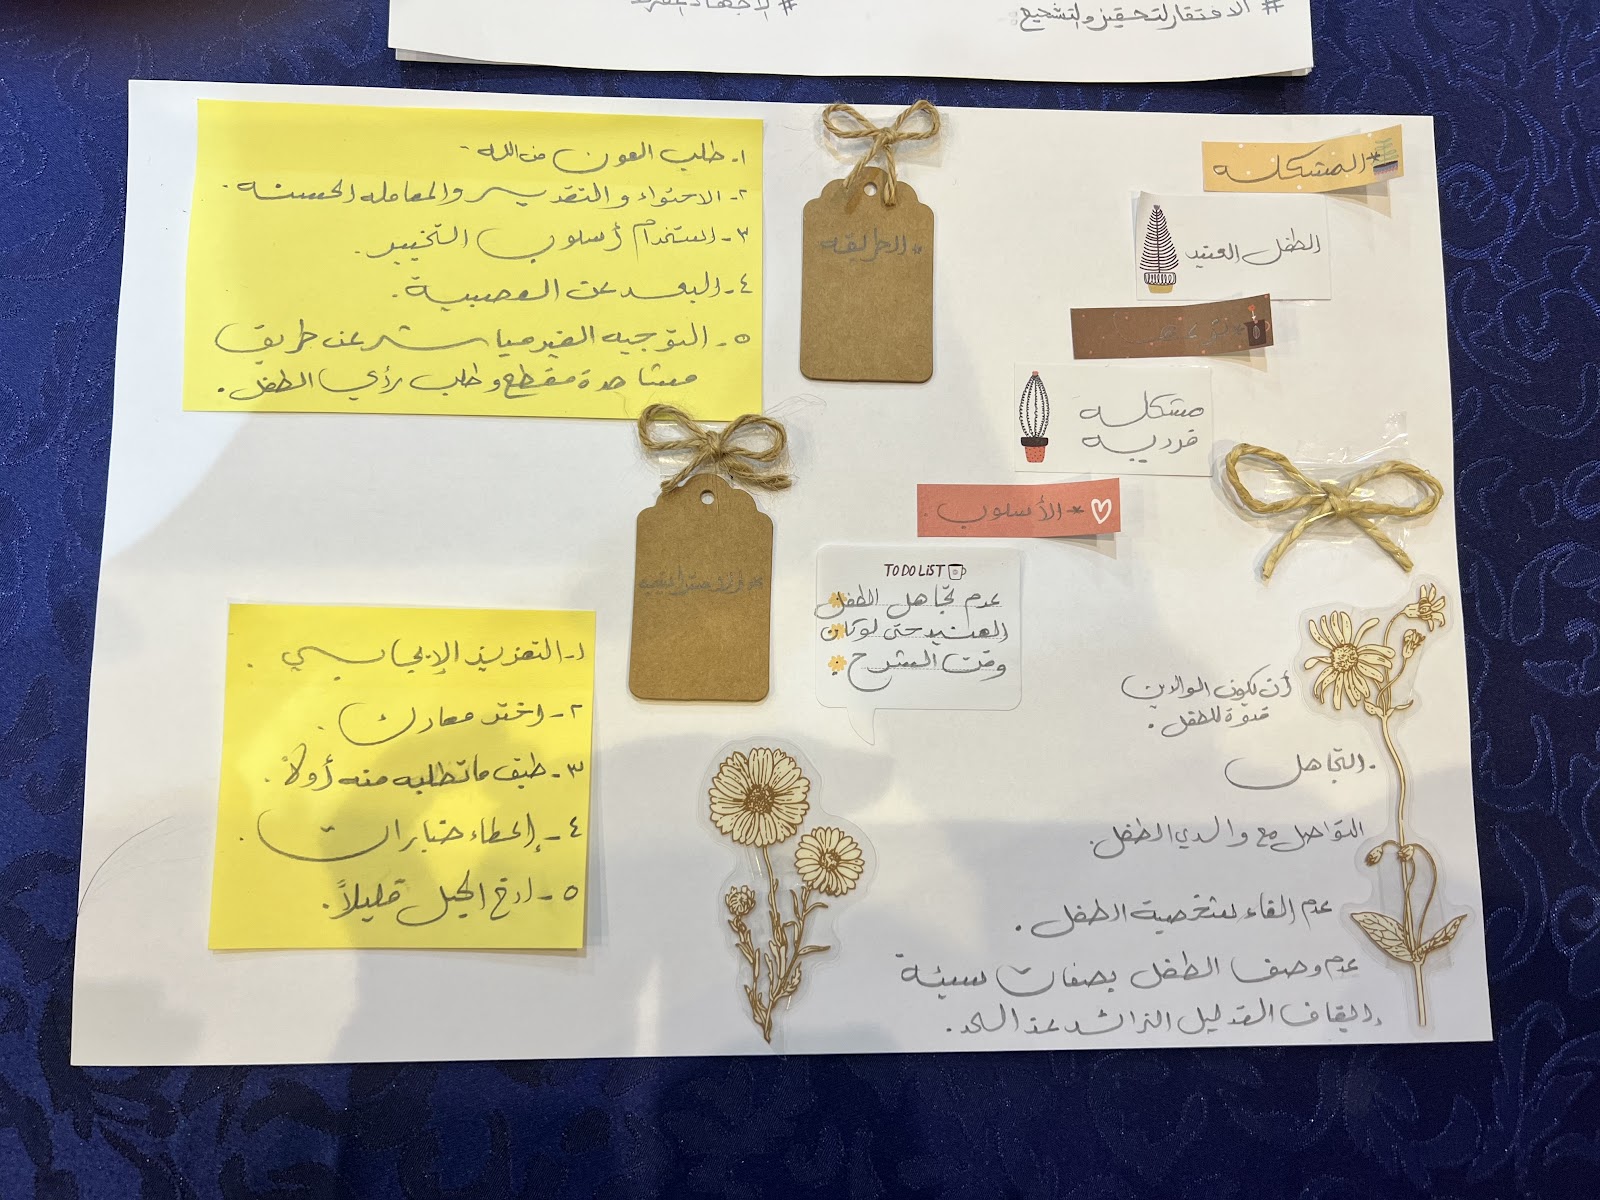 # الافتقار لتحفيز والتشجيع
*المشكله
الطفل العنيد
مشكله
فرديه
*الأسلوب.
TO DO LIST
عدم تجاهل الطفل
العنيد حتى لو كان
وقت الشرح
أن يكون الوالدين
قدوة للطفل.
- التجاهل
التواصل مع والدي الطفل.
عدم الغاء شخصية الطفل.
عدم وصف الطفل بصفات سيئة
إيقاف التدليل الزائد عند الحد.
*الطريقه
١- طلب العون من الله
٢- الاحتواء والتقدير والمعامله الحسنه.
٣- استخدام أسلوب التخيير.
٤- البعد عن العصبية.
٥- التوجيه الغير مباشر عن طريق
مشاهدة مقطع وطلب رأي الطفل.
١- التعزيز الإيجابي.
٢- اختر معارك.
٣- طبق ما تطلبه منه أولاً.
٤- إعطاء خيارات.
٥- ارخ الحبل قليلاً.